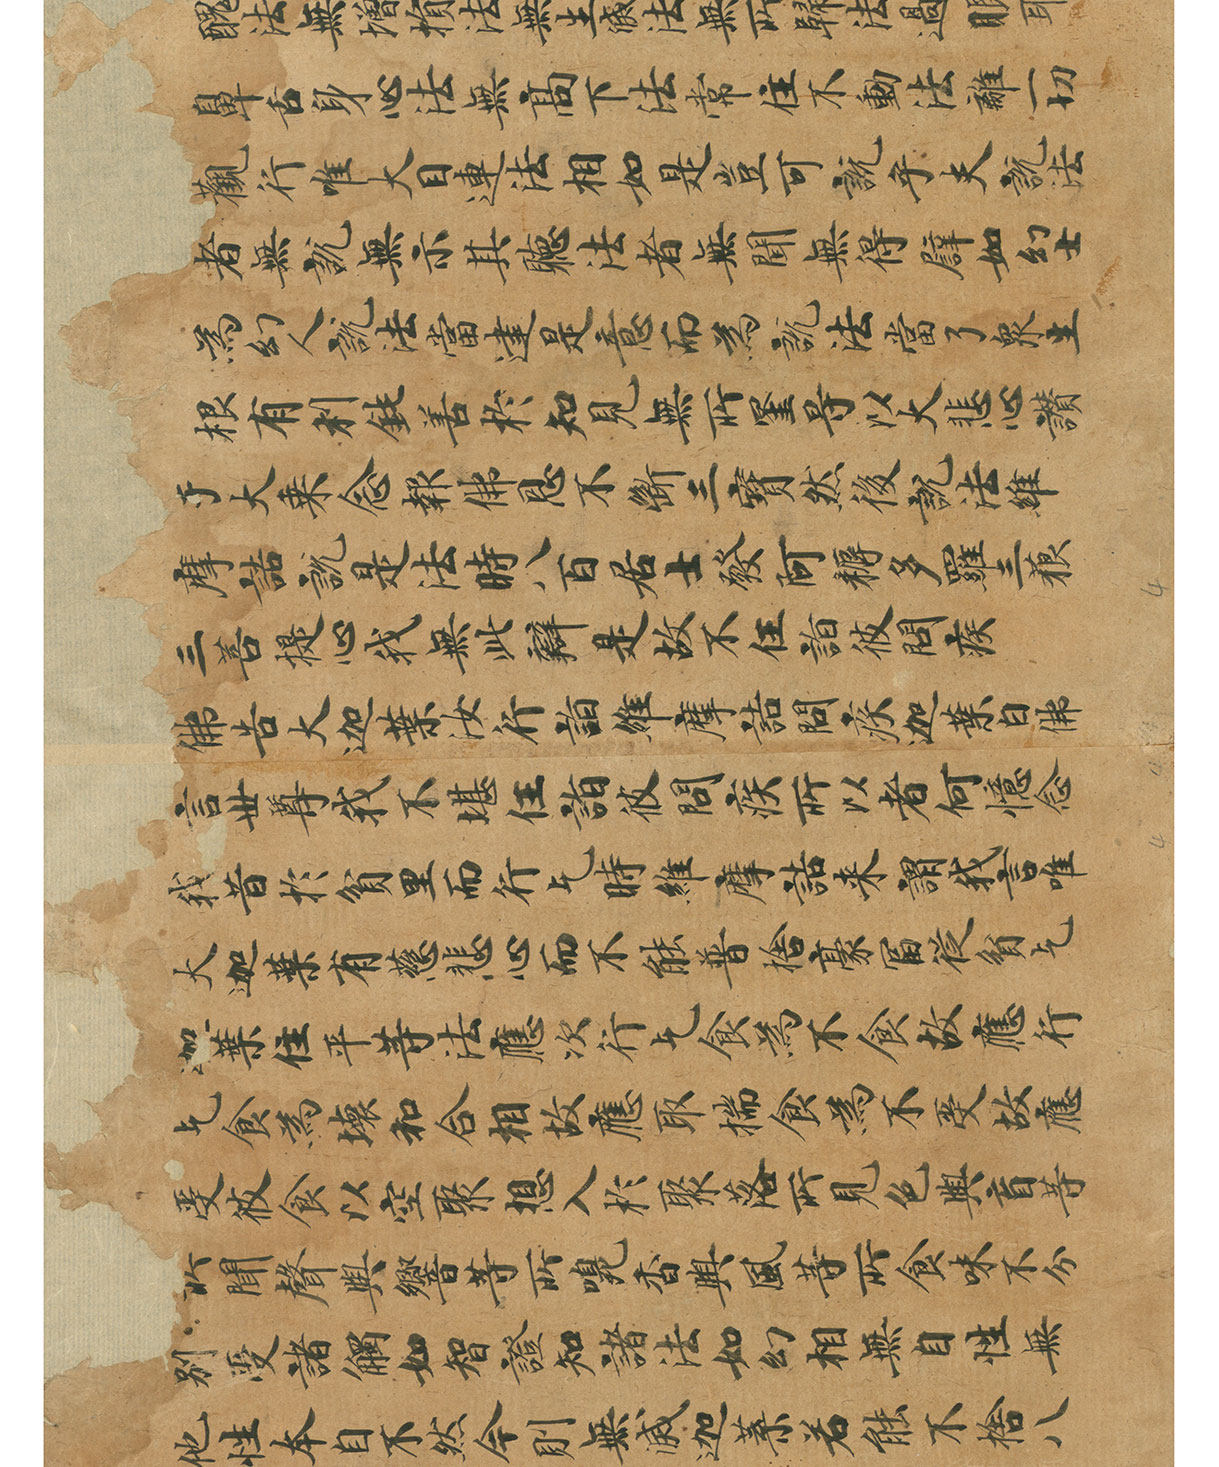 醜法無增損法無生滅法無所歸法過眼耳
鼻舌身心法無高下法常住不動法離一切
觀行唯大目連法相如是豈可說乎夫說法
者無說無示其聽法者無聞無得譬如幻士
為幻人說法當建是意而為說法當了眾生
根有利鈍善於知見無所罣㝵以大悲心讚
于大乘念報佛恩不斷三寶然後說法維
摩詰說是法時八百居士發阿耨多羅三藐
三菩提心我無此辯是故不任詣彼問疾
佛告大迦葉汝行詣維摩詰問疾迦葉白佛
言世尊我不堪任詣彼問疾所以者何憶念
我昔於貧里而行乞時維摩詰来謂我言唯
大迦葉有慈悲心而不能普捨豪富從貧乞
迦葉住平等法應次行乞食為不食故應行
乞食為壞和合相故應取揣食為不受故應
受彼食以空聚想入於聚落所見色與盲等
所聞聲與響等所嗅香與風等所食味不分
別受諸觸如智證知諸法如幻相無自性無
他性本自不然今則無滅迦葉若能不捨八